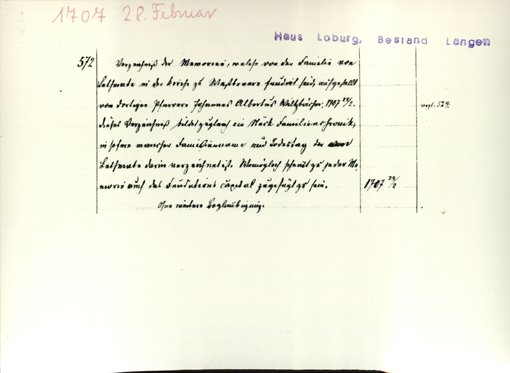 1707 28. Februar
Haus Loburg, Bestand Langen
572
Verzeichniß der Memorien, welche von der Familie von
Letmate in der Kirche zu Westbevern fundirt sind, aufgestellt
von dortigem Pfarrer Johannes Albertus 1707 28/2.
vergl. 524.
dieses Verzeichniß bildet zugleich ein Stück Familienchronik,
in sofern mancher Familienname und Todestag der
Letmate darin verzeichnet ist. Womöglich scheint zu jeder Me-
morie auch das Fundations capital zugefügt zu sein.
1707 28/2
Ohne weitere Beglaubigung.